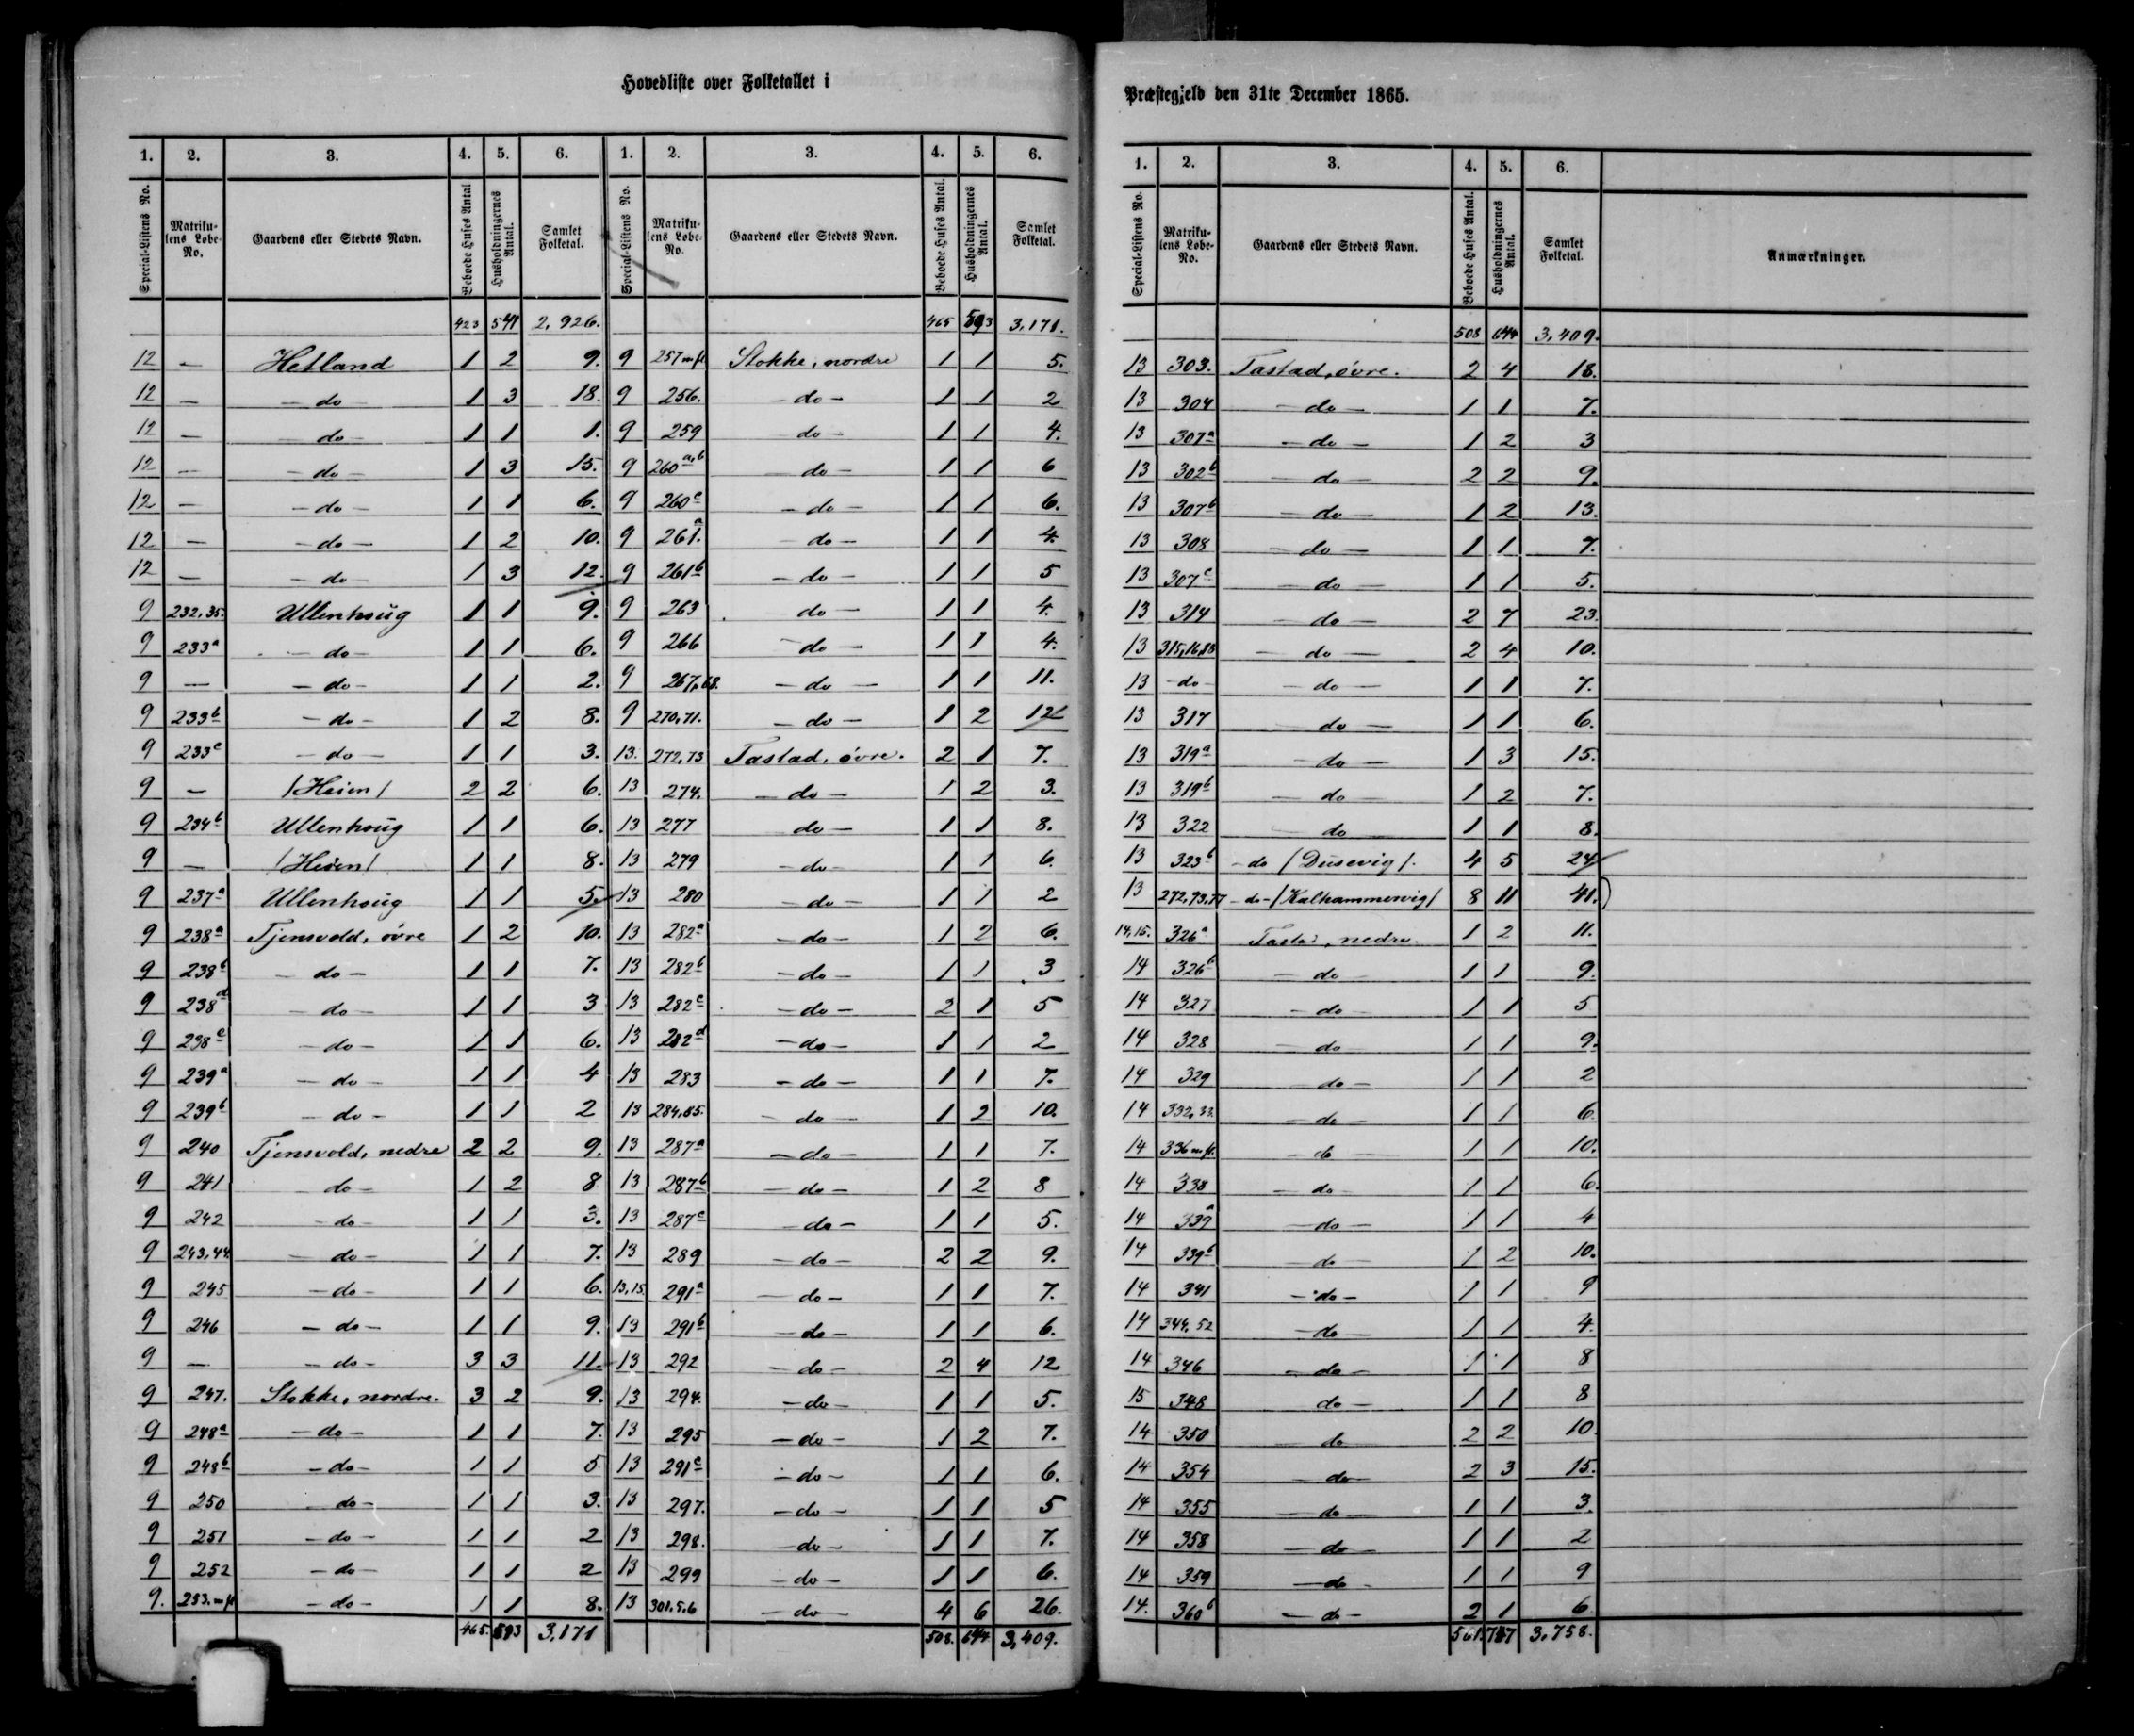 Hovedliste over Folketallet i
1. 2. 3. 4. 5. 6. 1. 2. 3. 4. 5. 6.
Special-Listens No. Matriku-lens Løbe-No. Gaardens eller Stedets Navn. Beboede Huses Antal Husholdningernes Antal. Samlet Folketal. Special-Listens No. Matriku-lens Løbe-No. Gaardens eller Stedets Navn. Beboede Huses Antal. Husholdningernes Antal. Samlet Folketal.
423 541 2,926. 465 593 3,171.
12 - Hetland 1 2 9. 9 257 m fl Stokke, nordre 1 1 5.
12 - - do - 1 3 18. 9 256. - do - 1 1 2
12 - - do - 1 1 1. 9 259 - do - 1 1 4.
12 - - do - 1 3 15. 9 260 a,b - do - 1 1 6
12 - - do - 1 1 6. 9 260 c - do - 1 1 6.
12 - - do - 1 2 10. 9 261. a - do - 1 1 4.
12 - - do - 1 3 12. 9 261 b - do - 1 1 5
9 232,35. Ullenhoug 1 1 9. 9 263 do - 1 1 4.
9 233 a - do - 1 1 6. 9 266 - do - 1 1 4.
9 - - do - 1 1 2. 9 267,68. - do - 1 1 11.
9 233 b - do - 1 2 8. 9 270,71. - do - 1 2 12
9 233 c - do - 1 1 3. 13. 272,73 Tastad, øvre. 2 1 7.
9 - /Heien/ 2 2 6. 13 274. - do - 1 2 3.
9 234 b Ullenhoug 1 1 6. 13 277 do - 1 1 8.
9 - /Heien/ 1 1 8. 13 279 - do - 1 1 6.
9 237 a Ullenhoug 1 1 5. 13 280 - do - 1 1 2
9 238 a Tjensvold, øvre 1 2 10. 13 282 a - do - 1 2 6.
9 238 b - do - 1 1 7. 13 282 b - do - 1 1 3
9 238 d - do - 1 1 3 13 282 c - do - 2 1 5
9 238 e - do - 1 1 6. 13 282 d - do - 1 1 2
9 239 a - do - 1 1 4 13 283 - do - 1 1 7.
9 239 b - do - 1 1 2 13 284,85. - do - 1 2 10.
9 240 Tjensvold, nedre 2 2 9. 13 287 a - do - 1 1 7.
9 241 - do - 1 2 8 13 287 b - do - 1 2 8
9 242 - do - 1 1 3. 13 287 c - do - 1 1 5.
9 243,44. - do - 1 1 7. 13 289 - do - 2 2 9.
9 245 - do - 1 1 6. 13,15. 291 a - do - 1 1 7.
9 246 - do - 1 1 9. 13 291 b - do - 1 1 6.
9 - - do - 3 3 11. 13 292 - do - 2 4 12
9 247. Stokke, nordre. 3 2 9. 13 294. - do - 1 1 5.
9 248 a - do - 1 1 7. 13 295 - do - 1 2 7.
9 248 b - do - 1 1 5 13 291 c - do - 1 1 6.
9 250 - do - 1 1 3. 13 297. - do - 1 1 5
9 251 - do - 1 1 2 13 298. - do - 1 1 7.
9 252 - do - 1 1 2 13 299 - do - 1 1 6.
9. 253. m fl - do - 1 1 8. 13 301.5.6 - do - 4 6 26.
465. 593 3,171 508. 644 3,409.
Præstegjeld den 31te December 1865.
1. 2. 3. 4. 5. 6.
Special-Listens No. Matriku-lens Løbe-No. Gaardens eller Stedets Navn. Beboede Huses Antal. Husholdningernes Antal. Samlet Folketal. Anmærkninger.
508 644 3,409.
13 303. Tastad, øvre. 2 4 18.
13 304 - do - 1 1 7.
13 307 a - do - 1 2 3
13 302 b - do - 2 2 9.
13 307 b - do - 1 2 13.
13 308 - do - 1 1 7.
13 307 c - do - 1 1 5.
13 314 - do - 2 7 23.
13 315,16,18 - do - 2 4 10.
13 - do - - do - 1 1 7.
13 317 do - 1 1 6.
13 319 a - do - 1 3 15.
13 319 b - do - 1 2 7.
13 322 do 1 1 8.
13 323 b - do /Dusevig/. 4 5 24
13 272,73,77 - do - /Kalhammervig/ 8 11 41.
14,15. 326 a Tastad, nedre. 1 2 11.
14 326 b - do 1 1 9.
14 327 - do 1 1 5
14 328 - do 1 1 9.
14 329 - do - 1 1 2
14 332,33. - do - 1 1 6.
14 336 m fl. - do 1 1 10.
14 338 - do 1 1 6.
14 339 a - do - 1 1 4
14 339 b - do - 1 2 10.
14 341 - do - 1 1 9
14 344,52 - do - 1 1 4.
14 346 - do - 1 1 8
15 348 do - 1 1 8
14 350 - do 2 2 10
14 354 - do - 2 3 15.
14 355 - do - 1 1 3.
14 358 - do - 1 1 2
14 359 - do - 1 1 9
14. 360 b - do - 2 1 6
561. 727 3,758.